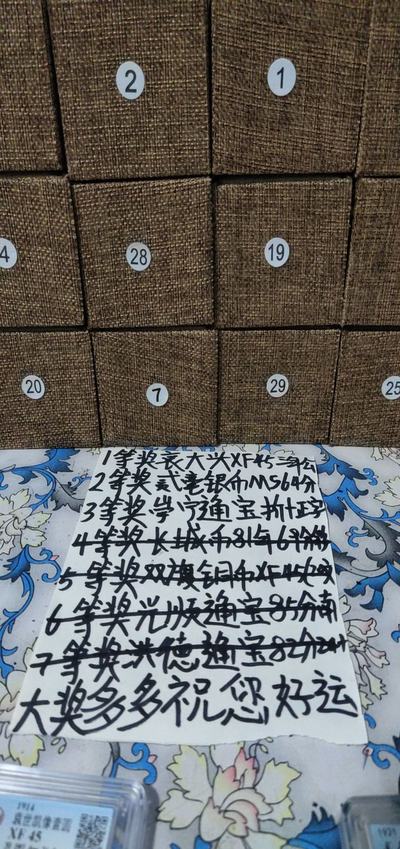 2
1
4
28
19
20
7
29
25
1等奖袁大头XF45
2等奖贰毫银币MS64分
3等奖崇宁通宝折十正字
4等奖长城币81年67分
5等奖双旗铜币XF45
6等奖光顺通宝85分
7等奖洪德通宝82分
大奖多多祝您好运
1914
袁世凯像壹圆
XF 45